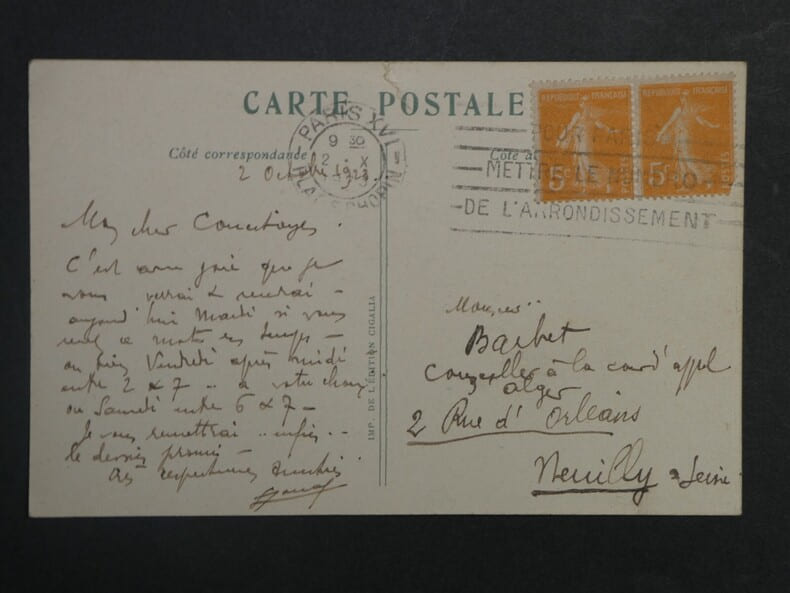 CARTE POSTALE
Côté correspondance
PARIS XVI
9 30
2 · X
PL. CHOPIN
POUR PARIS
METTRE LE N°
DE L'ARRONDISSEMENT
REPUBLIQUE FRANÇAISE
5c
POSTES
REPUBLIQUE FRANÇAISE
5c
POSTES
2 Octobre 1923
Mon cher
C'est avec joie que je
vous
aujourd'hui Mardi si vous
ce mot en temps —
ou bien Vendredi après midi
entre 2 & 7 — à votre choix
ou Samedi entre 6 & 7 —
Je vous remettrai
le dernier promis —
IMP. DE L'ÉDITION CIGALIA
Monsieur
Barbet
Conseiller à la cour d'appel
alger
2 Rue d'Orléans
Neuilly s Seine